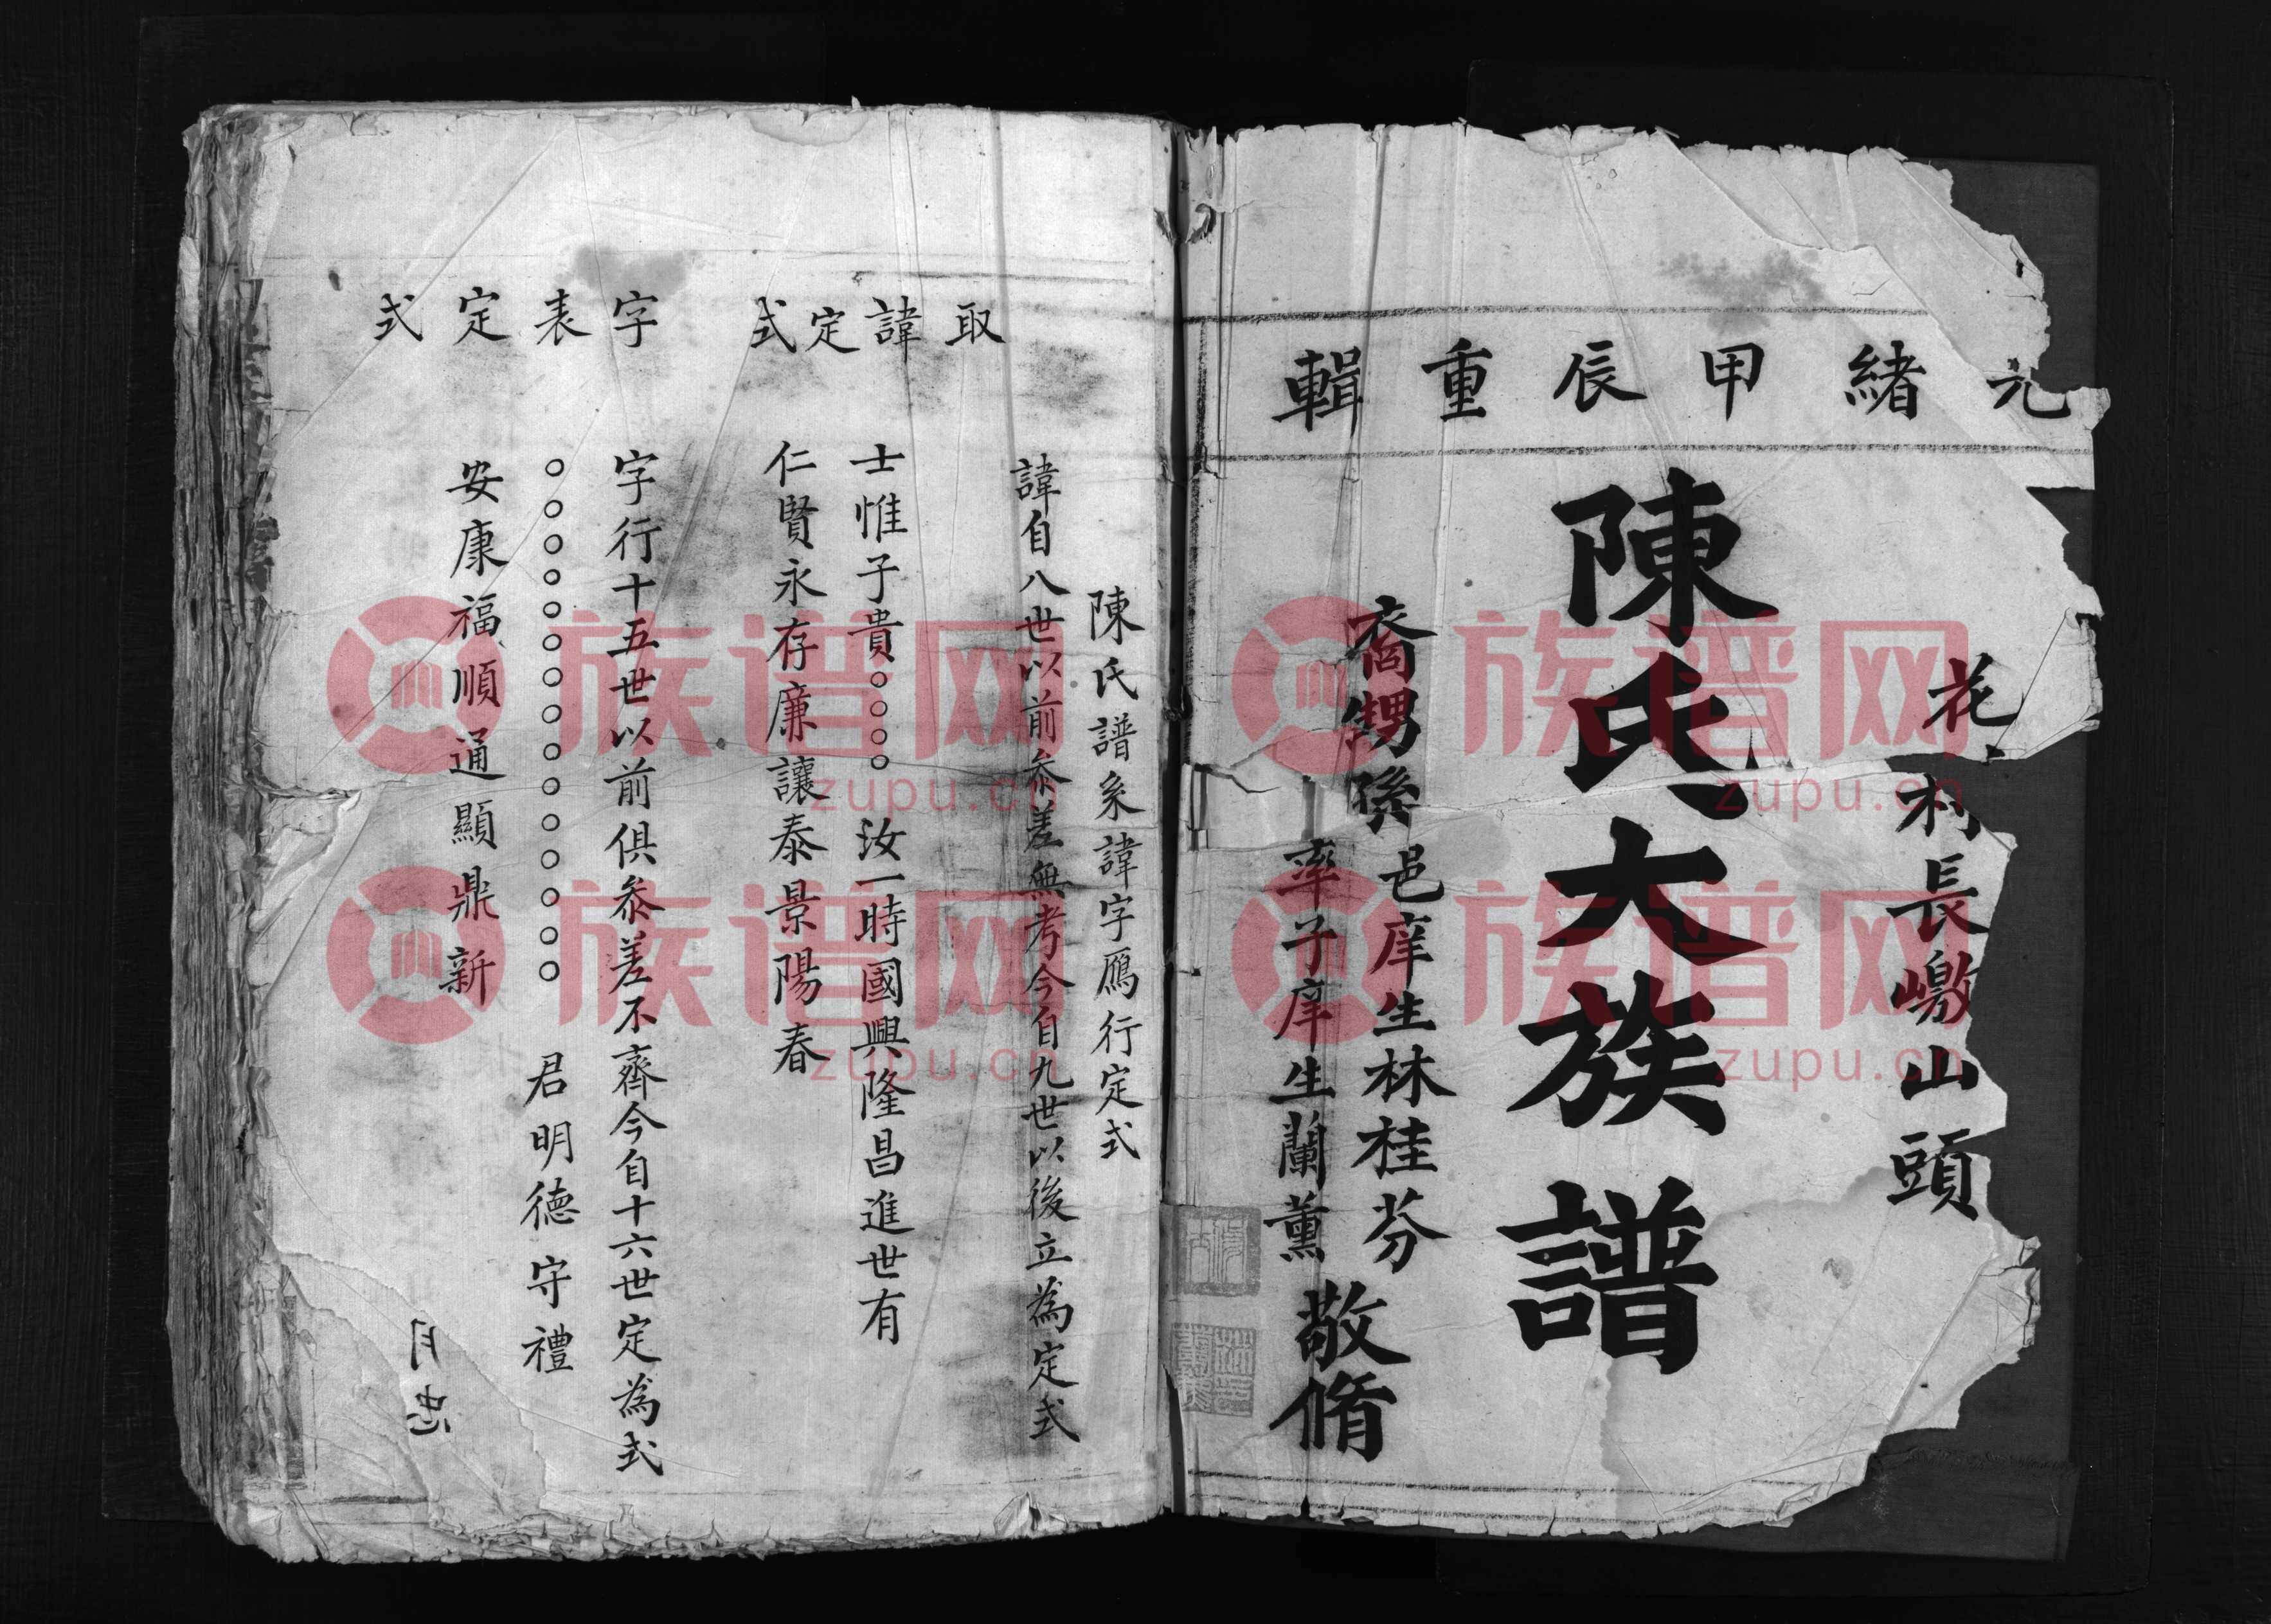 光緒甲辰重輯
花
利長嶩山頭
陳氏大族譜
裔甥孫邑庠生林桂芬
率子庠生蘭薰
敬脩
陳氏譜系諱字鴈行定式
取諱定式
諱自八世以前叅差無考今自九世以後立為定式
士惟子貴○○○○汝一時國興隆昌進世有
仁賢永存廉讓泰景陽春
字表定式
字行十五世以前俱叅差不齊今自十六世定為式
○○○○○○○○○○○○○○○君明德守禮
安康福順通顯鼎新
族谱网
zupu.cn
族谱网
zupu.cn
族谱网
zupu.cn
族谱网
zupu.cn